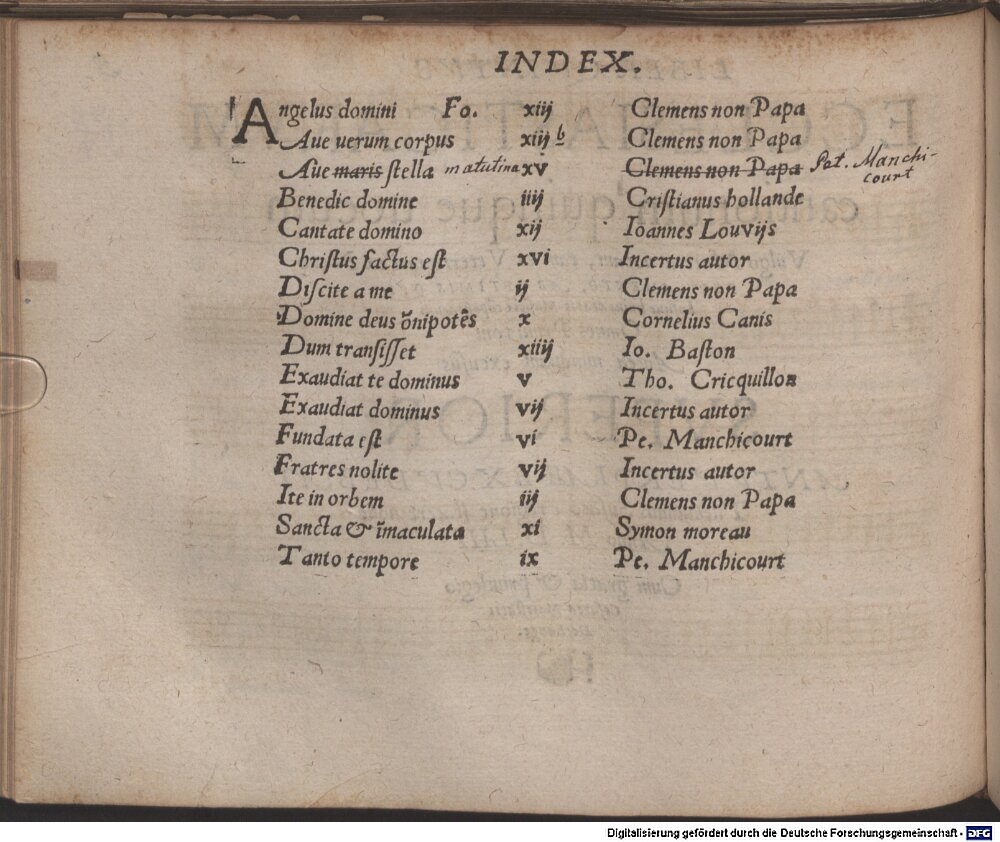 INDEX.
Angelus domini Fo. xiij Clemens non Papa
Aue uerum corpus xiij b Clemens non Papa
Aue maris stella matutina xv Clemens non Papa Pet. Manchi-
court
Benedic domine iiij Cristianus hollande
Cantate domino xij Ioannes Louvijs
Christus factus est xvi Incertus autor
Discite a me ij Clemens non Papa
Domine deus õnipotẽs x Cornelius Canis
Dum transisset xiiij Io. Baston
Exaudiat te dominus v Tho. Cricquillon
Exaudiat dominus vij Incertus autor
Fundata est vi Pe. Manchicourt
Fratres nolite vij Incertus autor
Ite in orbem iij Clemens non Papa
Sancta & ĩmaculata xi Symon moreau
Tanto tempore ix Pe. Manchicourt
Digitalisierung gefördert durch die Deutsche Forschungsgemeinschaft - DFG